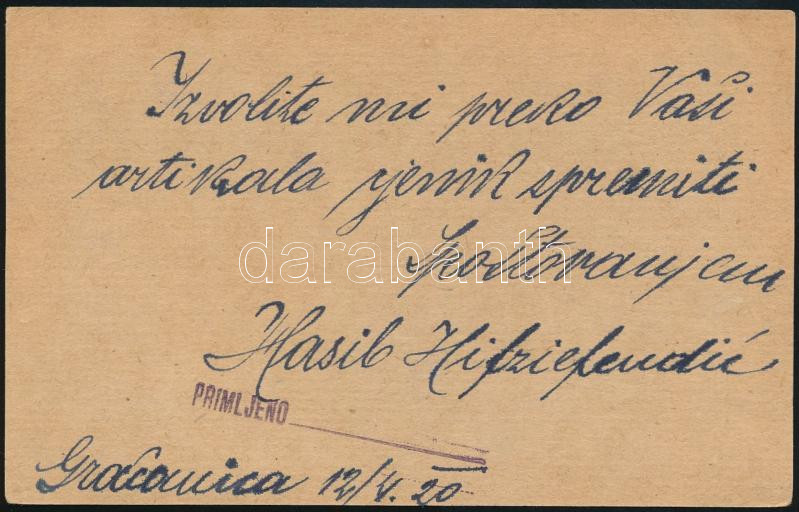 Izvolite mi preko Vaši
artikala cjenik spremiti
darabanth
Spoštovanjem
Hasib Hifziefendić
PRIMLJENO
Gračanica 12/4. 20